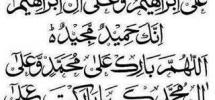 عَلَىٰ إِبْرَاهِيمَ وَعَلَىٰ آلِ إِبْرَاهِيمَ
إِنَّكَ حَمِيدٌ مَجِيدٌ
اللَّهُمَّ بَارِكْ عَلَىٰ مُحَمَّدٍ وَعَلَىٰ
آلِ مُحَمَّدٍ كَمَا بَارَكْتَ عَلَىٰ